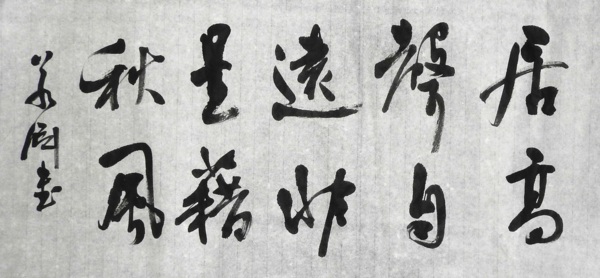 居高
聲自
遠非
是藉
秋風
書